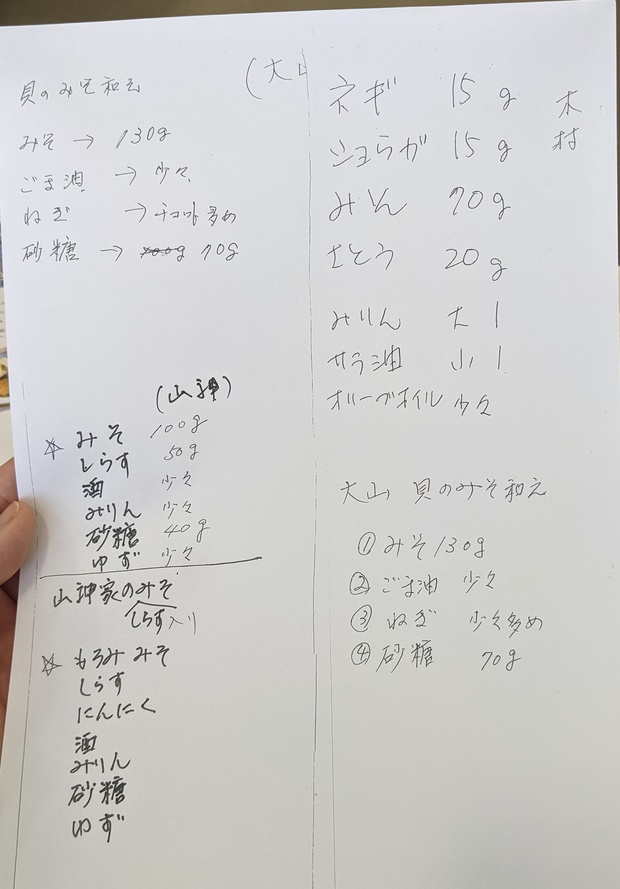 貝のみそ和え
(大山
みそ → 130g
ごま油 → 少々
ねぎ → チョット多め
砂糖 → 70g
(山神)
☆ みそ 100g
しらす 50g
酒 少々
みりん 少々
砂糖 40g
ゆず 少々
山神家のみそ
しらす入り
☆ もろみ みそ
しらす
にんにく
酒
みりん
砂糖
ゆず
木村
ネギ 15g
ショウガ 15g
みそ 70g
さとう 20g
みりん 大1
サラ油 小1
オリーブオイル 少々
大山 貝のみそ和え
① みそ 130g
② ごま油 少々
③ ねぎ 少々多め
④ 砂糖 70g